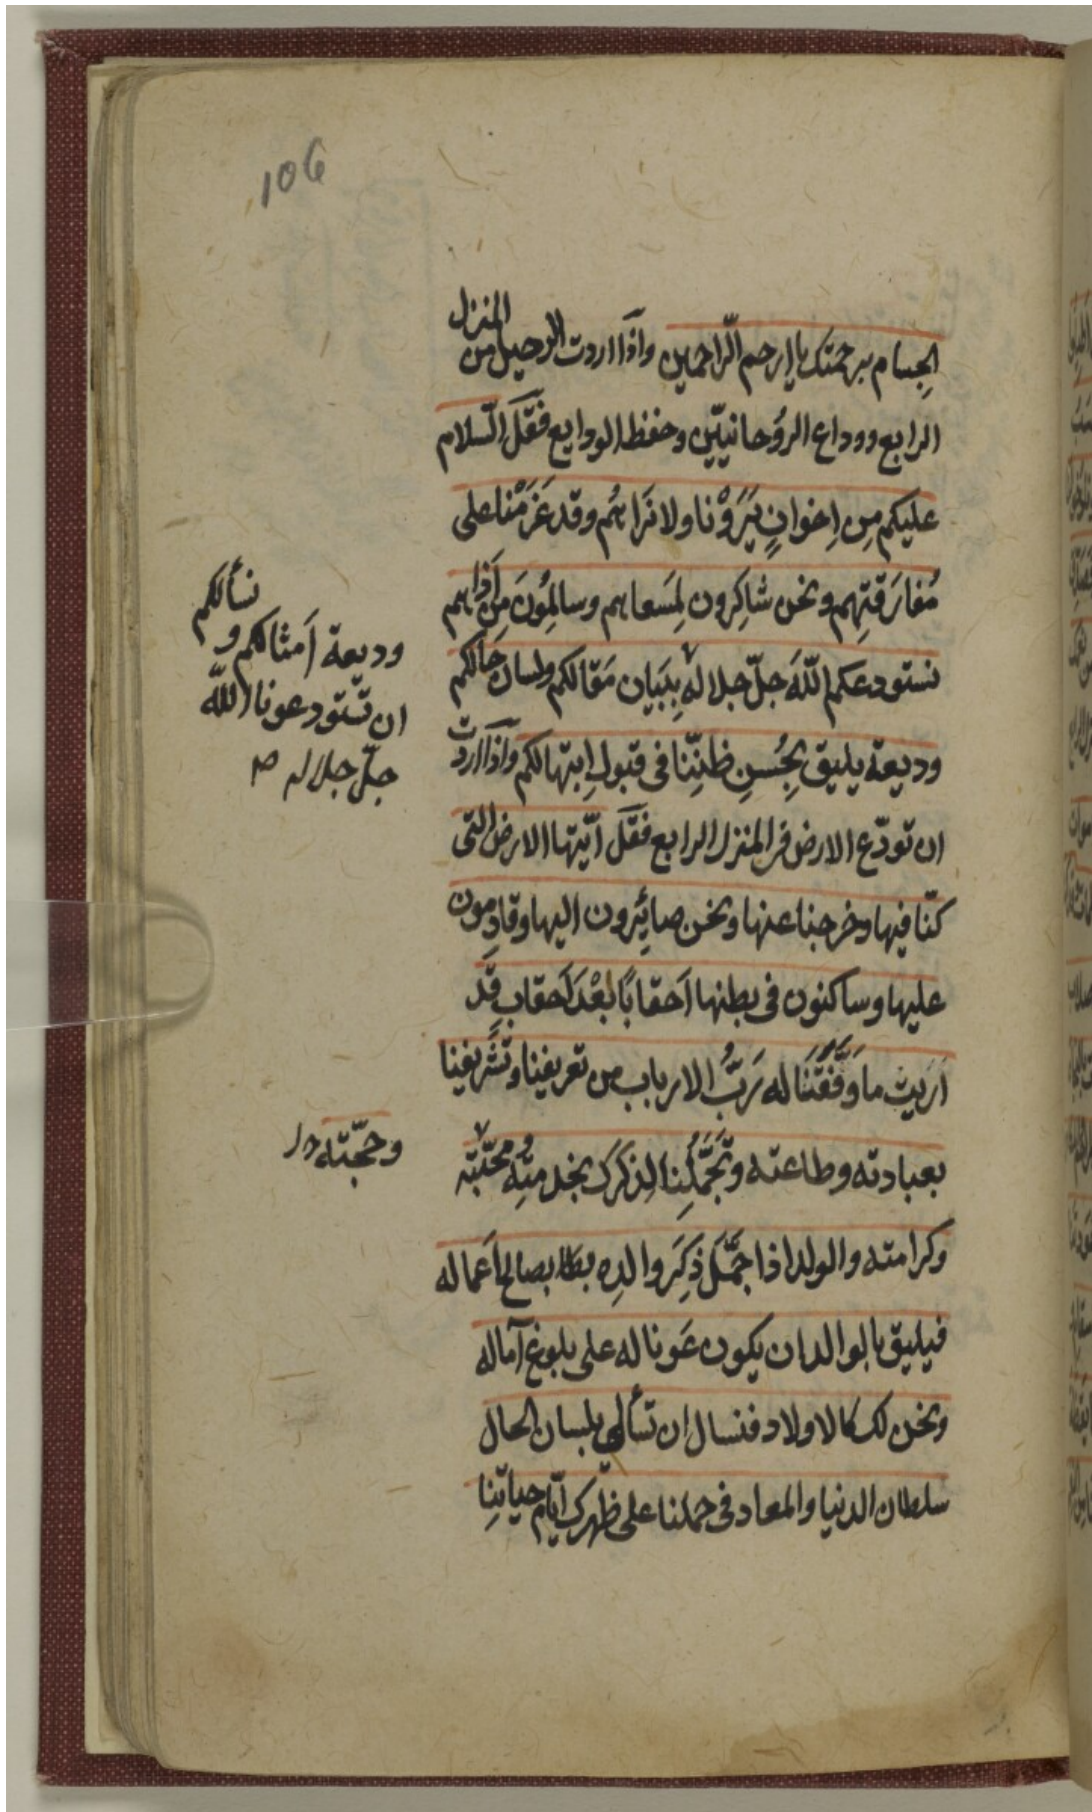 106
الجسام برحمتك يا ارحم الراحمين واذا اردت الرحيل من المنزل
الرابع ووداع الروُحانييّن وحفظ الودايع فَقُل السّلام
عليكم مِن اِخوانٍ يَرَوْنا ولا نَراهُم وقد عَزَمْنا على
مُفارَقتِهِم ونحن شاكِرون لِمَسعاهم وسالِمُونَ مِن اَذاهم
نستودعكم اللّٰهَ جلّ جلاله بِبَيان مَقالكم ولسان حالكم
نسألكم
وديعة اَمثالكم و
ان تستودعونا اللّٰه
جلّ جلاله صح
وديعة يليق بِحُسنِ ظَنِّنا فى قبول اِبتهالكم واذا اردت
ان تودّع الارض فى المنزل الرابع فَقُل ايّتها الارض التى
كنّا فيها وخرجنا عنها ونحن صائِرون اليها وقادِمون
عليها وساكنون فى بطنها اَحقابًا بَعْدَ اَحقاب قَد
اَرَيت ما وَفَّقَنا له رَبُّ الارباب من تعريفنا وتَشريفنا
بعبادته وطاعته وتَجَمُّلِنا لِذكرك بخدمتِه ومحبّته
وحجّته
وكرامته والولد اذا جَمَّلَ ذِكَر والدِه بصالح اَعماله
فيليق بالوالد ان يكون عَونا له على بلوغ آماله
ونحن لك كالاولاد فنسال ان تسألى بلسان الحال
سلطان الدنيا والمعاد فى حملنا على ظهرك ايّام حياتِنا